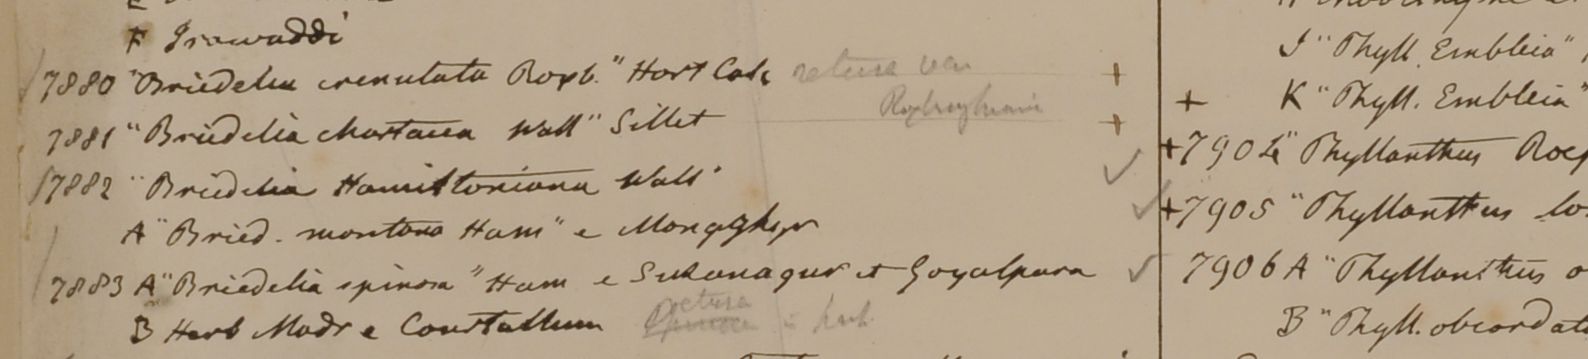 F Irawaddi
7880 "Briedelia crenulata Roxb." Hort Calc retusa var
Roxburghiana
7881 "Briedelia chartacea Wall" Sillet
7882 "Briedelia Hamiltoniana Wall"
A "Bried. montana Ham" e Mongghyr
7883 A "Briedelia spinosa" Ham e Sukanagur et Goyalpara
retusa
B Herb Madr e Courtallum spinosa in herb.
J "Phyll. Emblica"
+ K "Phyll. Emblica"
+7904 "Phyllanthus
+7905 "Phyllanthus
7906 A "Phyllanthus
B "Phyll. obcordat